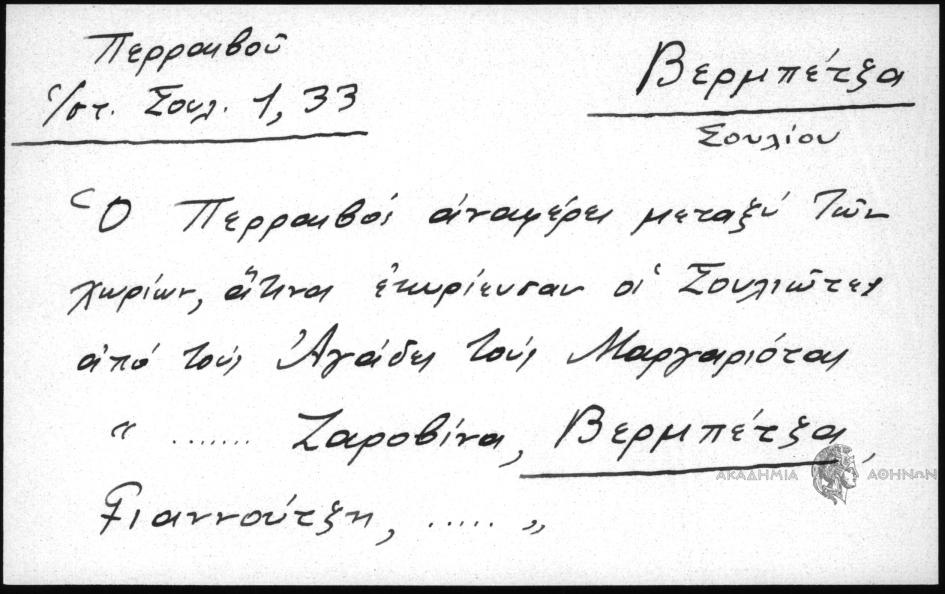 Περραιβοῦ
Ἱστ. Σουλ. 1, 33
Βερμπέτζα
Σουλίου
Ὁ Περραιβός ἀναφέρει μεταξύ τῶν
χωρίων, ἅτινα ἐκυρίευσαν οἱ Σουλιῶτες
ἀπό τούς Ἀγάδες τούς Μαργαριότας
" ....... Ζαροβίνα, Βερμπέτζα,
Γιαννούτζη, ..... "
ΑΚΑΔΗΜΙΑ ΑΘΗΝΩΝ